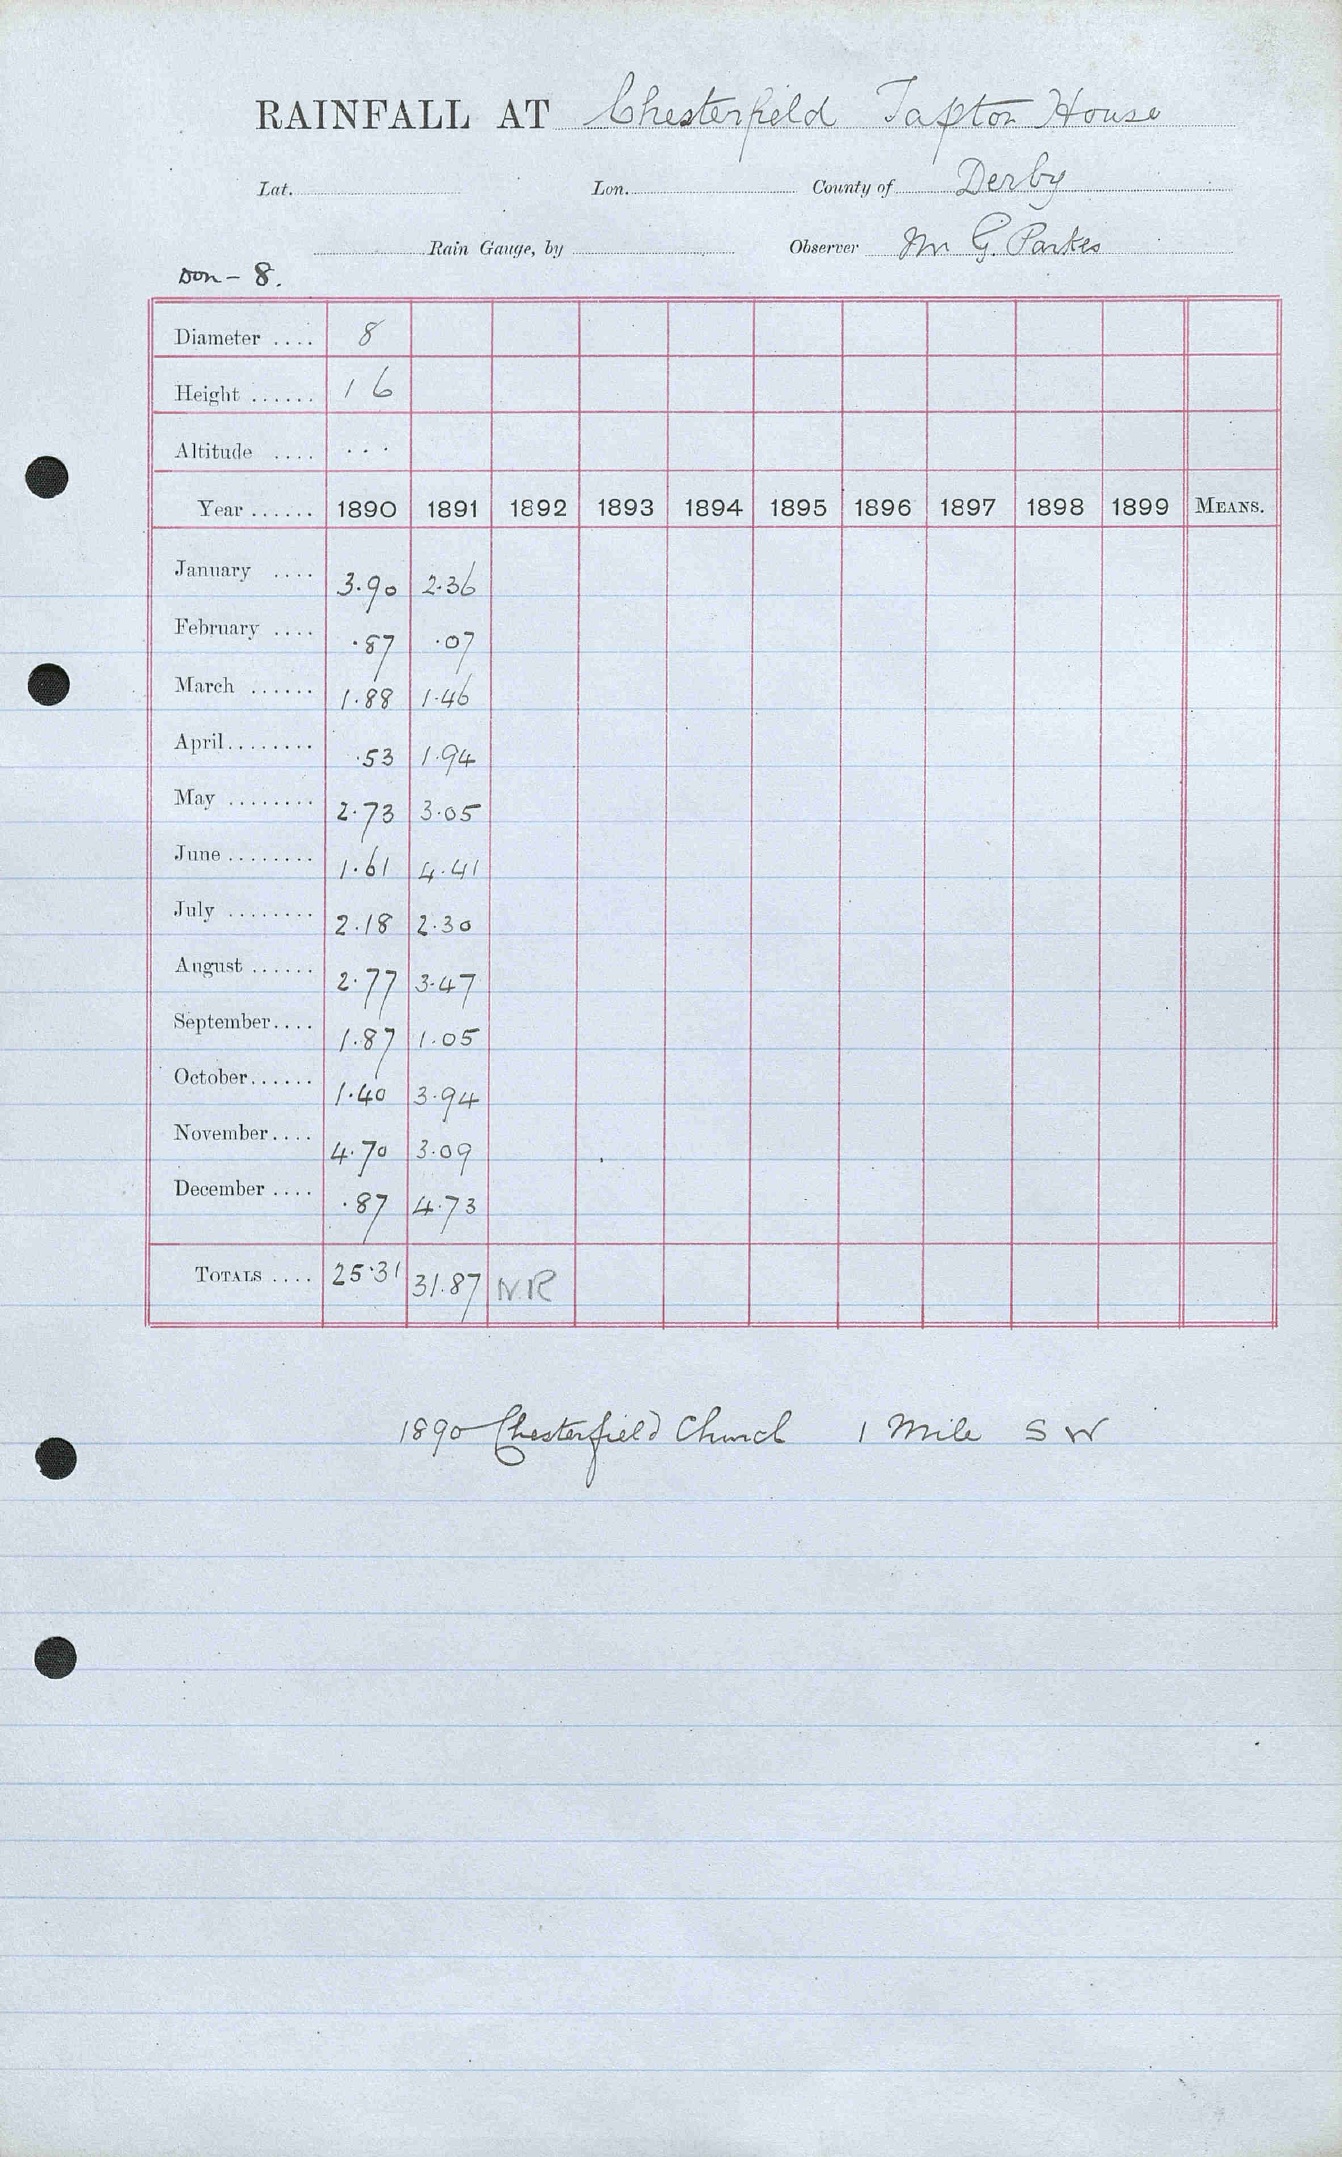 RAINFALL AT Chesterfield Tapton House
Lat. Lon. County of Derby
Rain Gauge, by Observer Mr G. Parkes
Don - 8.
Diameter .... 8
Height ...... 1 6
Altitude .... ...
Year ...... 1890 1891 1892 1893 1894 1895 1896 1897 1898 1899 MEANS.
January .... 3.90 2.36
February .... .87 .07
March ...... 1.88 1.46
April ........ .53 1.94
May ........ 2.73 3.05
June ........ 1.61 4.41
July ........ 2.18 2.30
August ...... 2.77 3.47
September .... 1.87 1.05
October ...... 1.40 3.94
November .... 4.70 3.09
December .... .87 4.73
TOTALS .... 25.31 31.87 N.R
1890 Chesterfield Church 1 Mile S W